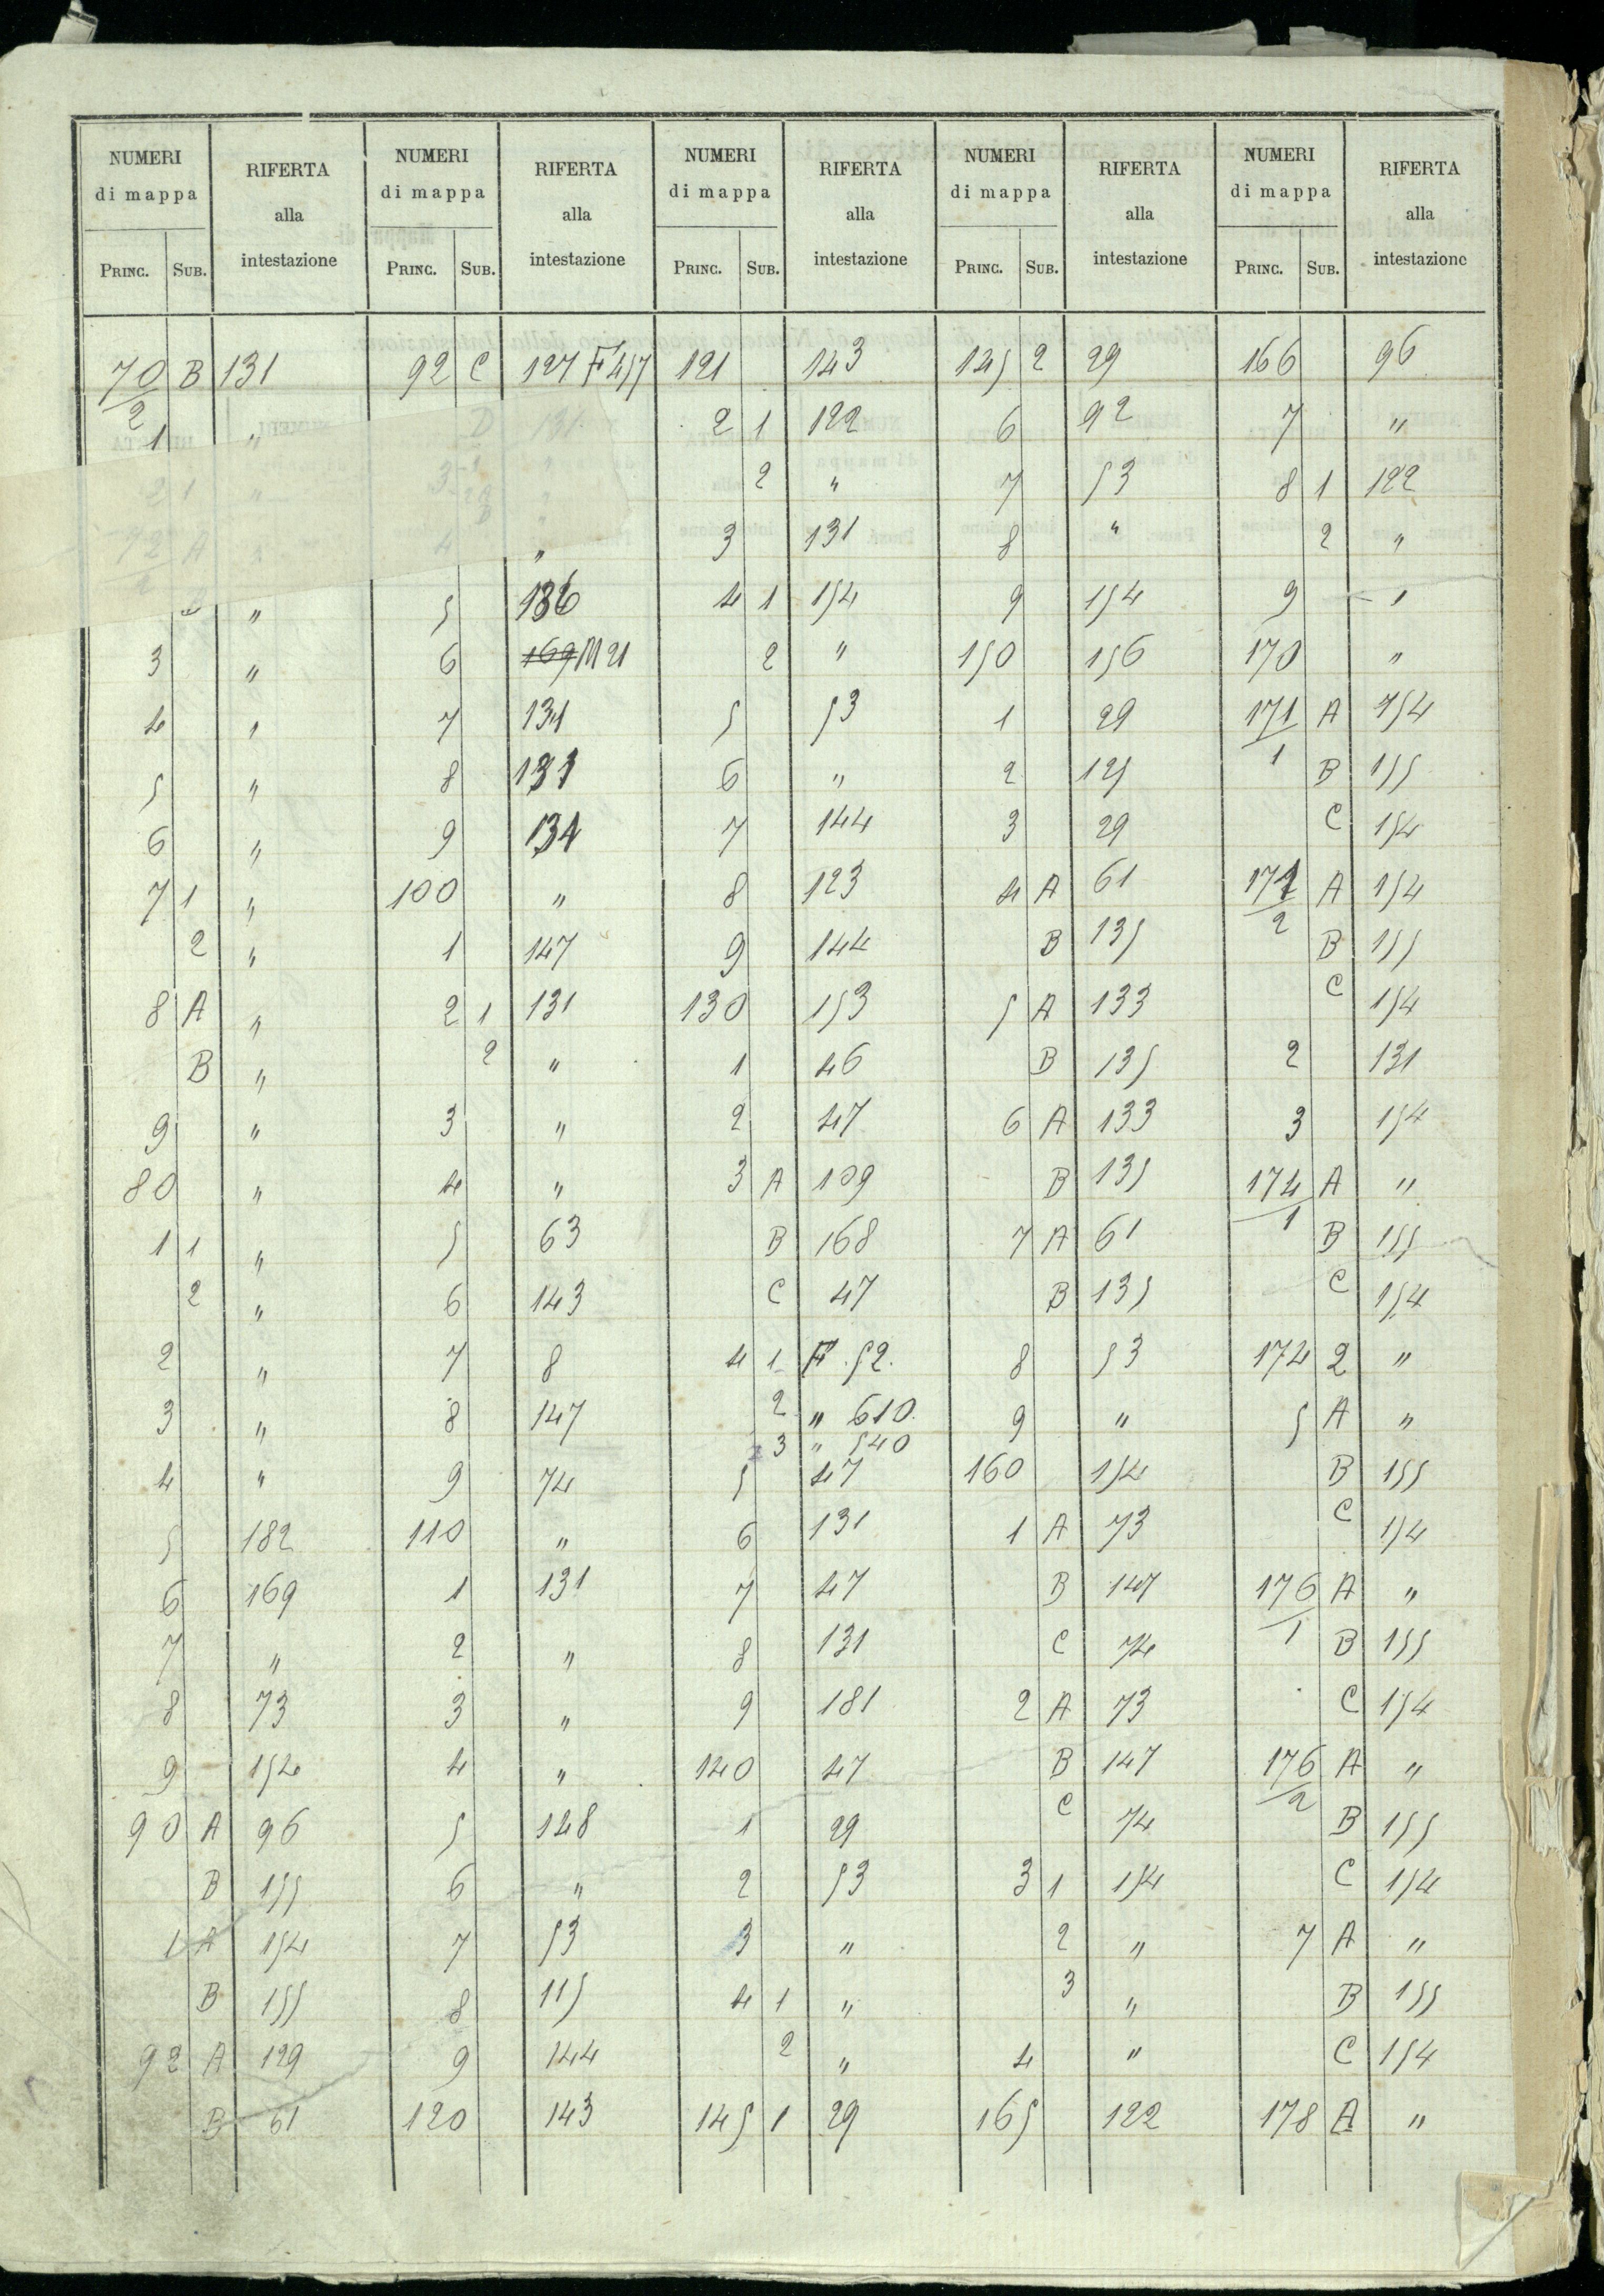 NUMERI di mappa | RIFERTA alla intestazione | NUMERI di mappa | RIFERTA alla intestazione | NUMERI di mappa | RIFERTA alla intestazione | NUMERI di mappa | RIFERTA alla intestazione | NUMERI di mappa | RIFERTA alla intestazione
PRINC. | SUB. | PRINC. | SUB. | PRINC. | SUB. | PRINC. | SUB. | PRINC. | SUB.
70/2 B 131 | 92 C 127 F 457 | 121 143 | 145 2 29 | 166 96
1 " | D 131 | 2 1 122 | 6 92 | 7 "
2 1 " | 3 | 2 " | 7 53 | 8 1 122
72 A | 4 " | 3 131 | 8 " | 2 "
B " | 5 136 | 4 1 154 | 9 154 | 9 "
3 " | 6 169 M 21 | 2 " | 150 156 | 170 "
4 " | 7 131 | 5 53 | 1 29 | 171/1 A 154
5 " | 8 131 | 6 " | 2 125 | B 155
6 " | 9 131 | 7 144 | 3 29 | C 154
7 1 " | 100 " | 8 123 | 4 A 61 | 171/2 A 154
2 " | 1 147 | 9 144 | B 135 | B 155
8 A " | 2 1 131 | 130 153 | 5 A 133 | C 154
B " | 2 " | 1 46 | B 135 | 2 131
9 " | 3 " | 2 47 | 6 A 133 | 3 154
80 " | 4 " | 3 A 109 | B 135 | 174/1 A "
1 1 " | 5 63 | B 168 | 7 A 61 | B 155
2 " | 6 143 | C 47 | B 135 | C 154
2 " | 7 8 | 4 1 F 52. | 8 53 | 174 2 "
3 " | 8 147 | 2 " 610. | 9 " | 5 A "
3 " 540
4 " | 9 74 | 5 47 | 160 154 | B 155
5 182 | 110 " | 6 131 | 1 A 73 | C 154
6 169 | 1 131 | 7 47 | B 147 | 176/1 A "
7 " | 2 " | 8 131 | C 74 | B 155
8 73 | 3 " | 9 181 | 2 A 73 | C 154
9 154 | 4 " | 140 47 | B 147 | 176/2 A "
90 A 96 | 5 148 | 1 29 | C 74 | B 155
B 155 | 6 " | 2 53 | 3 1 154 | C 154
1 A 154 | 7 53 | 3 " | 2 " | 7 A "
B 155 | 8 115 | 4 1 " | 3 " | B 155
92 A 129 | 9 144 | 2 " | 4 " | C 154
B 61 | 120 143 | 145 1 29 | 165 122 | 178 A "